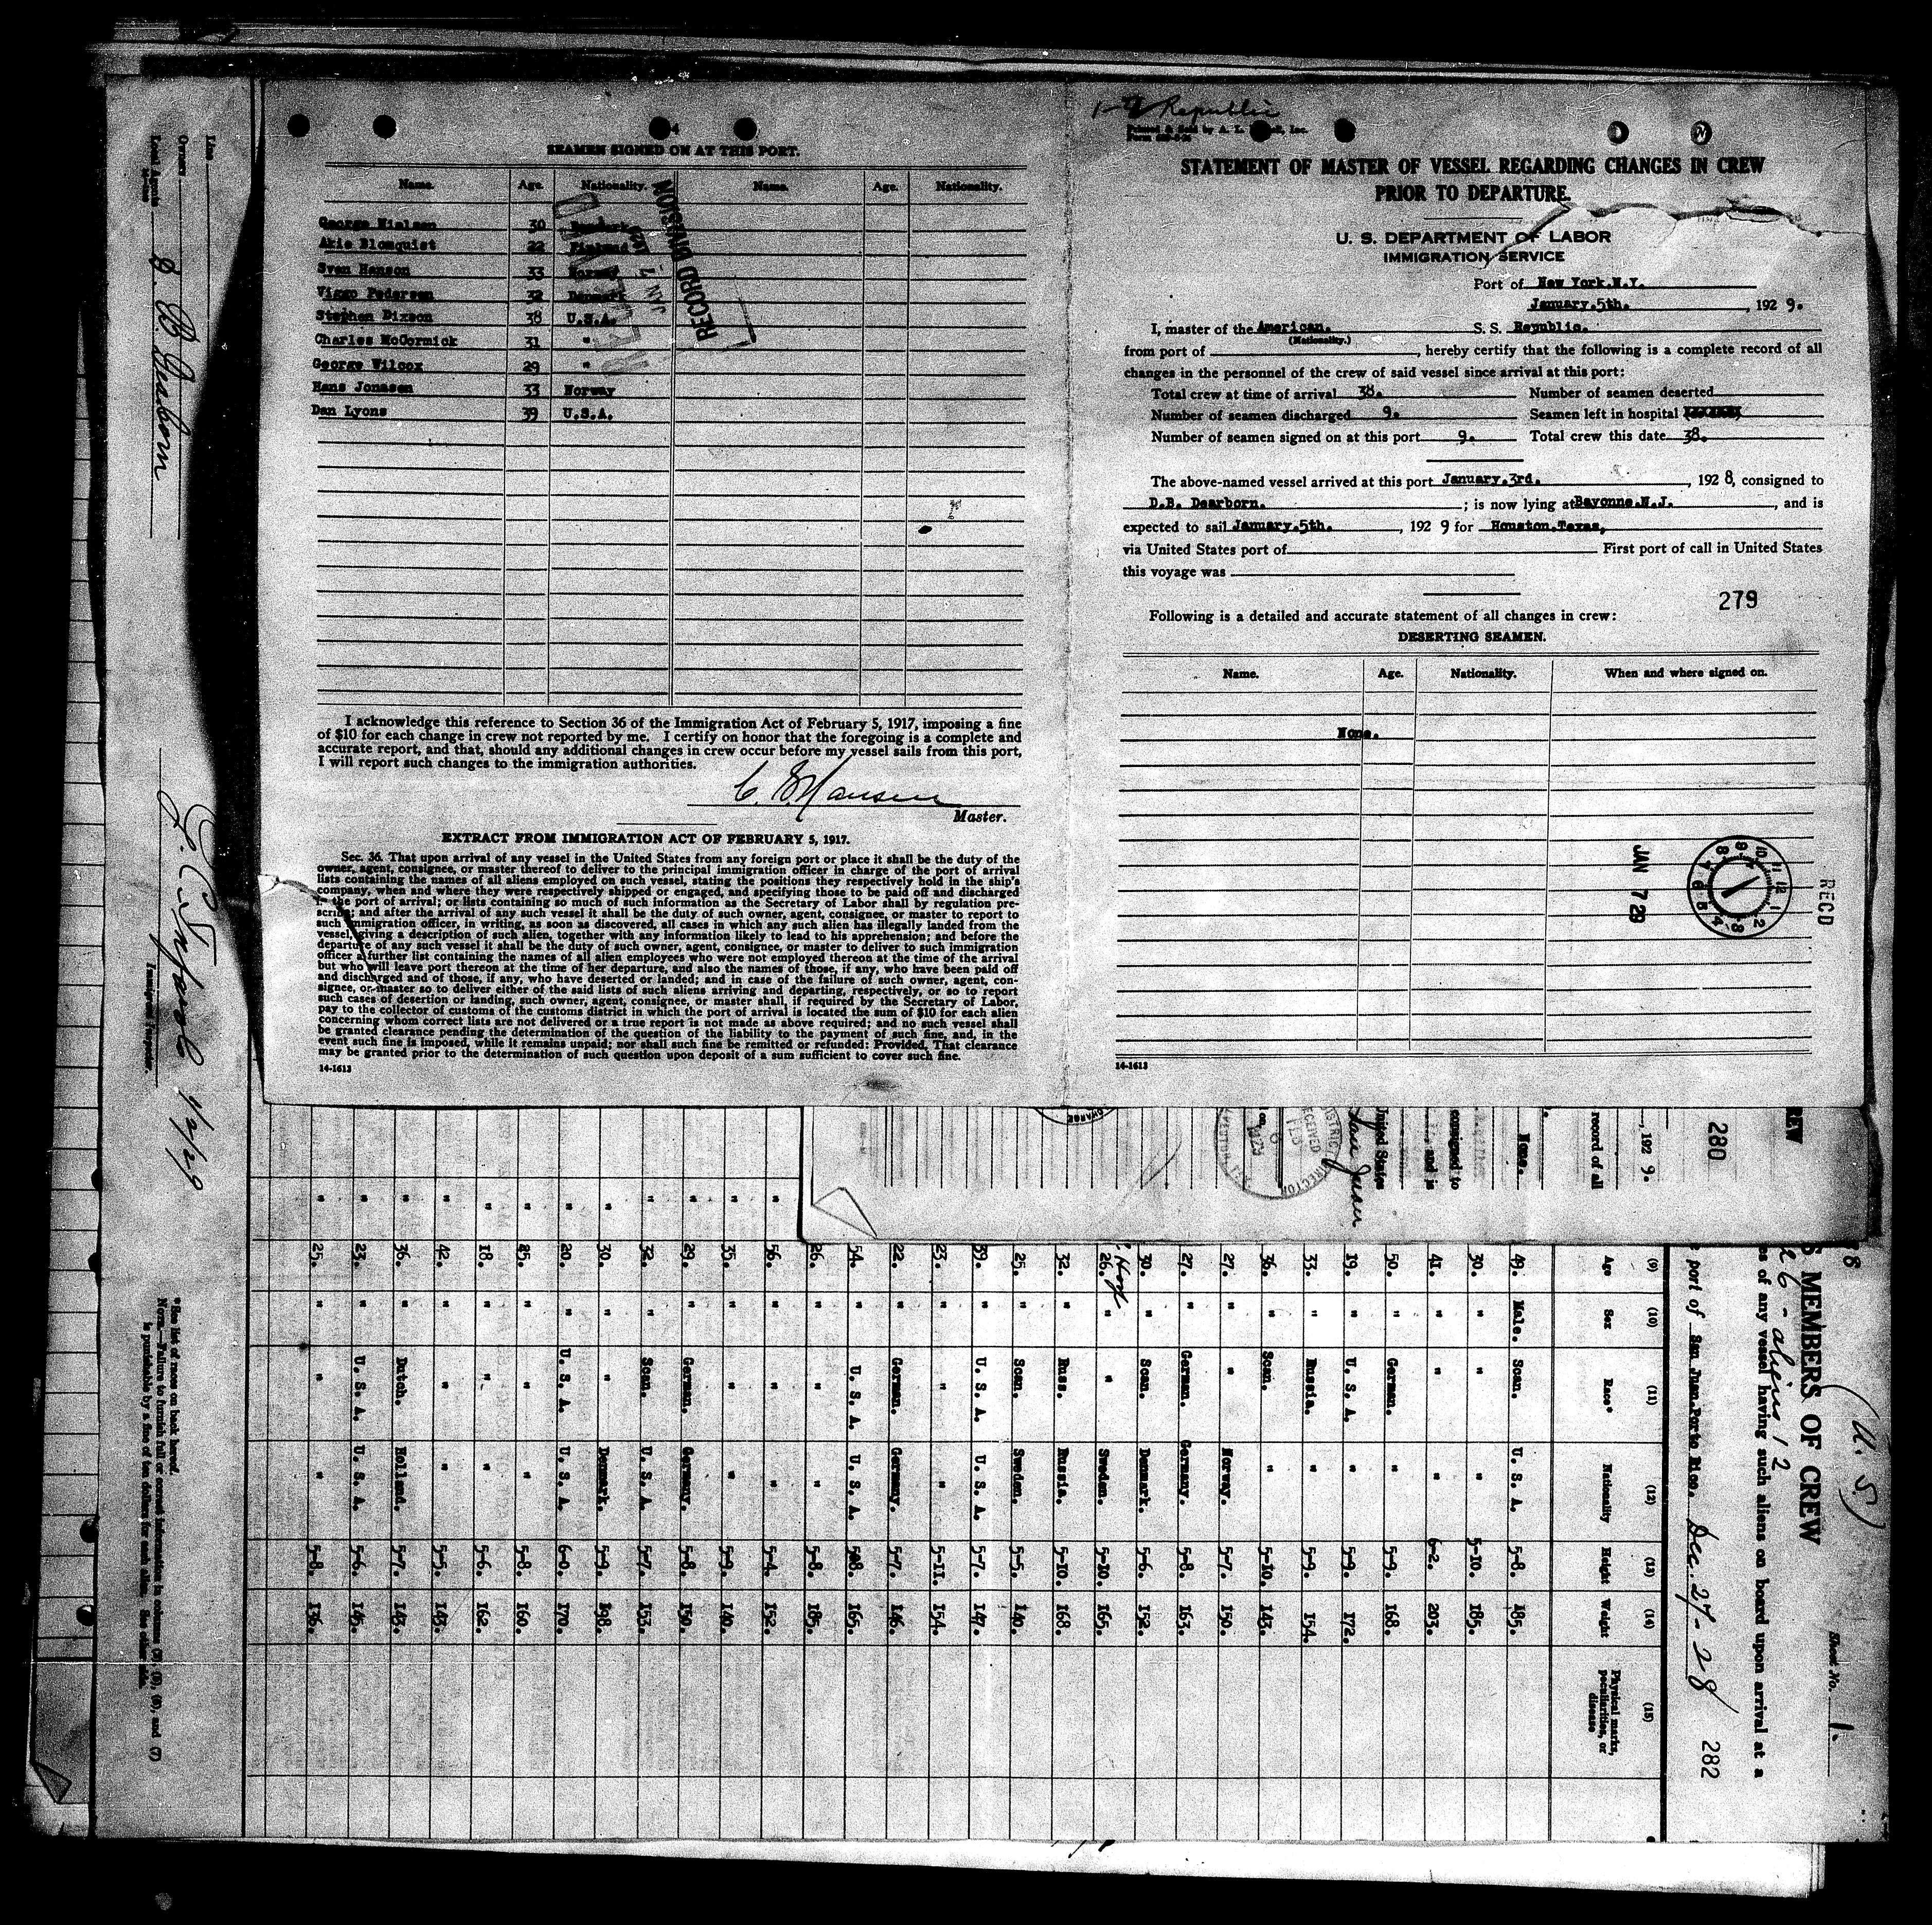 4
SEAMEN SIGNED ON AT THIS PORT.
Name. Age. Nationality. Name. Age. Nationality.
George Nielsen 30 Denmark
Akie Blomquist 22 Finland
Sven Hanson 33 Norway
Viggo Pedersen 32 Denmark
Stephen Dixson 38 U.S.A.
Charles McCormick 31 "
George Wilcox 29 "
Hans Jonasen 33 Norway
Dan Lyons 39 U.S.A.
RECORD DIVISION
JAN 7
I acknowledge this reference to Section 36 of the Immigration Act of February 5, 1917, imposing a fine
of $10 for each change in crew not reported by me. I certify on honor that the foregoing is a complete and
accurate report, and that, should any additional changes in crew occur before my vessel sails from this port,
I will report such changes to the immigration authorities.
Master.
EXTRACT FROM IMMIGRATION ACT OF FEBRUARY 5, 1917.
Sec. 36. That upon arrival of any vessel in the United States from any foreign port or place it shall be the duty of the
owner, agent, consignee, or master thereof to deliver to the principal immigration officer in charge of the port of arrival
lists containing the names of all aliens employed on such vessel, stating the positions they respectively hold in the ship's
company, when and where they were respectively shipped or engaged, and specifying those to be paid off and discharged
the port of arrival; or lists containing so much of such information as the Secretary of Labor shall by regulation pre-
scribe; and after the arrival of any such vessel it shall be the duty of such owner, agent, consignee, or master to report to
such immigration officer, in writing, as soon as discovered, all cases in which any such alien has illegally landed from the
vessel, giving a description of such alien, together with any information likely to lead to his apprehension; and before the
departure of any such vessel it shall be the duty of such owner, agent, consignee, or master to deliver to such immigration
officer a further list containing the names of all alien employees who were not employed thereon at the time of the arrival
but who will leave port thereon at the time of her departure, and also the names of those, if any, who have been paid off
and discharged and of those, if any, who have deserted or landed; and in case of the failure of such owner, agent, con-
signee, or master so to deliver either of the said lists of such aliens arriving and departing, respectively, or so to report
such cases of desertion or landing, such owner, agent, consignee, or master shall, if required by the Secretary of Labor,
pay to the collector of customs of the customs district in which the port of arrival is located the sum of $10 for each alien
concerning whom correct lists are not delivered or a true report is not made as above required; and no such vessel shall
be granted clearance pending the determination of the question of the liability to the payment of such fine, and, in the
event such fine is imposed, while it remains unpaid; nor shall such fine be remitted or refunded: Provided, That clearance
may be granted prior to the determination of such question upon deposit of a sum sufficient to cover such fine.
14-1613
Republic
Printed & Sold by A. L. Inc.
STATEMENT OF MASTER OF VESSEL REGARDING CHANGES IN CREW
PRIOR TO DEPARTURE.
U. S. DEPARTMENT OF LABOR
IMMIGRATION SERVICE
Port of New York.N.Y.
January.5th. , 192 9.
I, master of the American. S. S. Republic.
(Nationality.)
from port of , hereby certify that the following is a complete record of all
changes in the personnel of the crew of said vessel since arrival at this port:
Total crew at time of arrival 38. Number of seamen deserted
Number of seamen discharged 9. Seamen left in hospital
Number of seamen signed on at this port 9. Total crew this date 38.
The above-named vessel arrived at this port January.3rd. , 192 8, consigned to
D.B. Dearborn. ; is now lying at Bayonne.N.J. , and is
expected to sail January.5th. , 192 9 for Houston.Texas,
via United States port of First port of call in United States
this voyage was
279
Following is a detailed and accurate statement of all changes in crew:
DESERTING SEAMEN.
Name. Age. Nationality. When and where signed on.
None.
RECD
JAN 7 29
14-1613
Line
Owners
Local Agents D B Dearborn
1/2/29
Immigrant Inspector.
*See list of races on back hereof.
NOTE.—Failure to furnish full or correct information in columns (3), (5), (6), and (7)
is punishable by a fine of ten dollars for each alien. See other side.
REW
280
, 192 9.
record of all
None.
consigned to
, and is
United States
San Juan
RECEIVED
(U. S.)
Sheet No. 1.
MEMBERS OF CREW
26 - aliens 12
es of any vessel having such aliens on board upon arrival at a
port of San Juan.Porto Rico. Dec. 27 - 28
282
(9) (10) (11) (12) (13) (14) (15)
Age Sex Race* Nationality Height Weight Physical marks, peculiarities, or disease
49. Male. Scan. U. S. A. 5-8. 185.
30. " " " 5-10. 185.
41. " " " 6-2. 203.
50. " German. " 5-9. 168.
19. " U. S. A. " 5-9. 172.
33. " Russia. " 5-9. 154.
36. " Scan. " 5-10. 143.
27. " " Norway. 5-7. 150.
27. " German. Germany. 5-8. 163.
30. " Scan. Denmark. 5-6. 152.
26. " " Sweden. 5-10. 165.
32. " Russ. Russia. 5-10. 168.
25. " Scan. Sweden. 5-5. 140.
39. " U. S. A. U. S. A. 5-7. 147.
23. " " " 5-11. 154.
22. " German. Germany. 5-7. 146.
54. " U. S. A. U. S. A. 5-8. 165.
26. " " " 5-8. 185.
56. " " " 5-4. 152.
35. " " " 5-9. 140.
29. " German. Germany. 5-8. 150.
32. " Scan. U. S. A. 5-7. 153.
30. " " Denmark. 5-9. 198.
20. " U. S. A. U. S. A. 6-0. 170.
25. " " " 5-8. 160.
18. " " " 5-6. 162.
42. " " " 5-5. 143.
36. " Dutch. Holland. 5-7. 143.
23. " U. S. A. U. S. A. 5-6. 145.
25. " " " 5-8. 136.